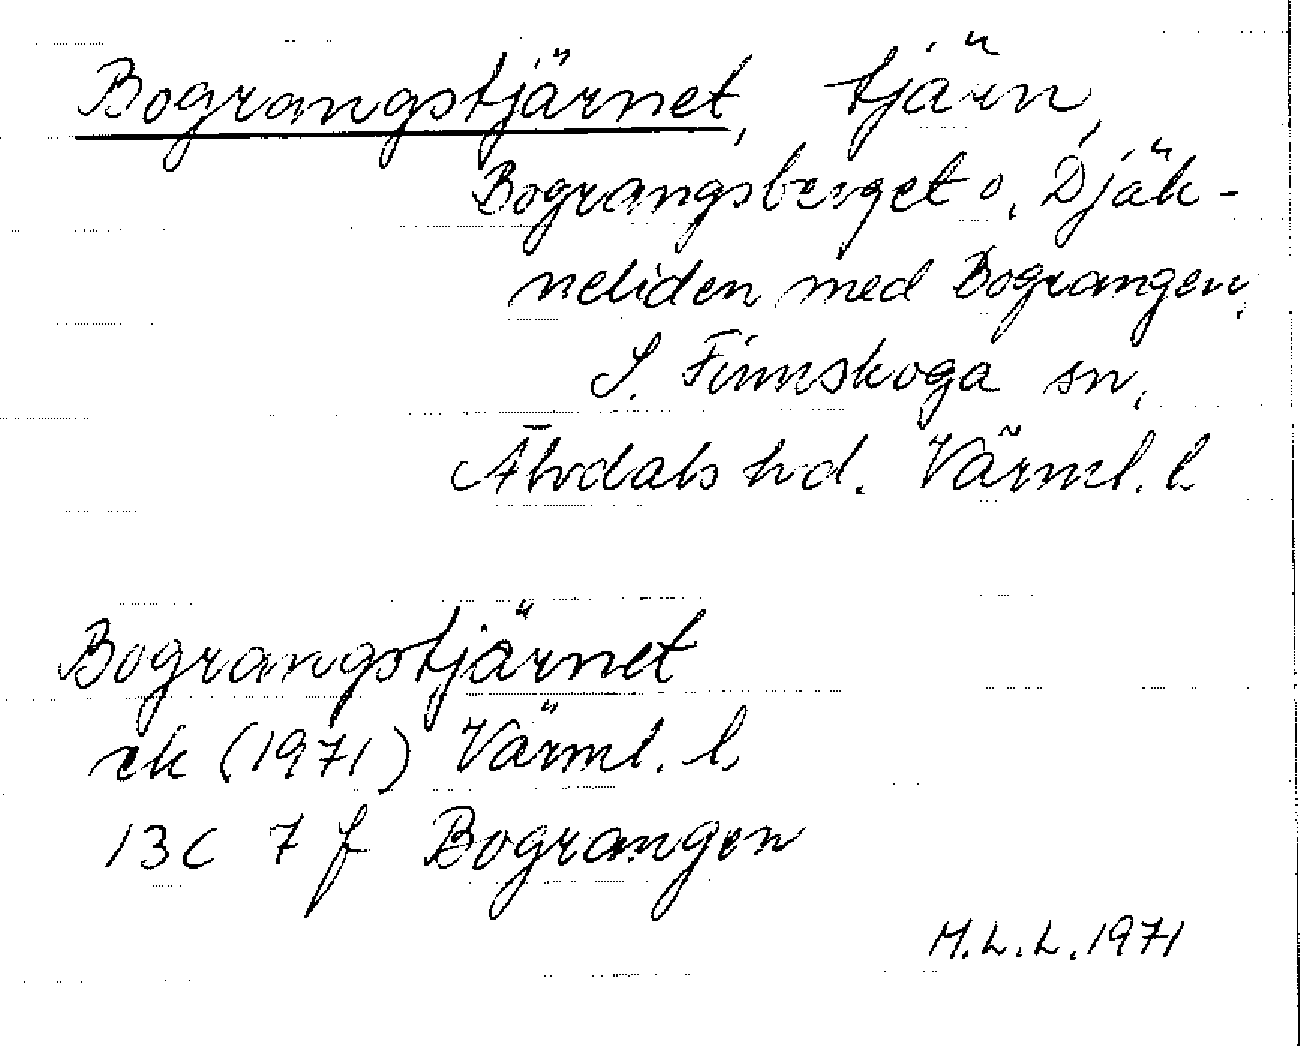 Bograngstjärnet, tjärn,
Bograngsberget o. Djäk-
neliden med Bograngen,
S. Finnskoga sn,
Älvdals hd. Värml. l.
Bograngstjärnet
ek (1971) Värml. l.
13C 7f Bograngen
M.L.L. 1971